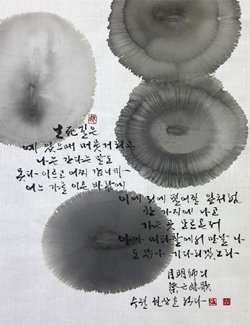 生死길은
예 있으매 머뭇거리고
나는 간다는 말도
못다 이르고 어찌 갑니까
어느 가을 이른 바람에
이에 저에 떨어질 잎처럼
한 가지에 나고
가는 곳 모르온저
아아 미타찰에서 만날 나
도 닦아 기다리겠노라
月明師의
祭亡妹歌